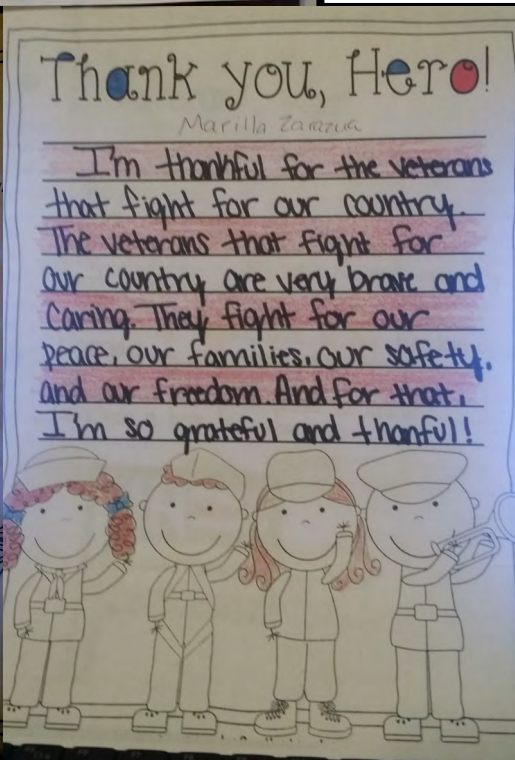 Thank you, Hero!
Marilla Zarazua
I'm thankful for the veterans
that fight for our country.
The veterans that fight for
our country are very brave and
caring. They fight for our
peace, our families, our safety,
and our freedom. And for that,
I'm so grateful and thanful!